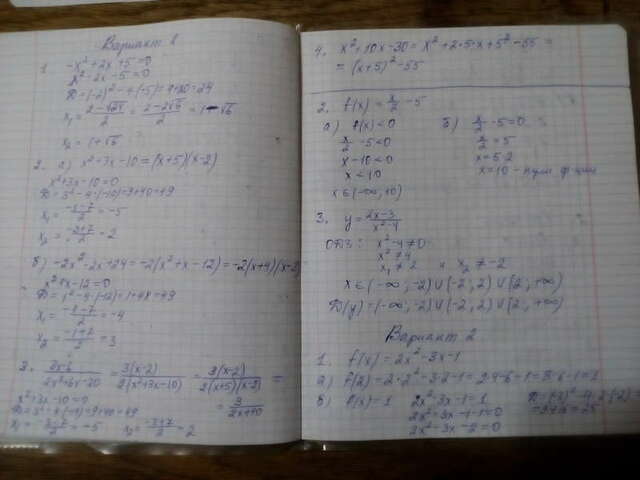 Вариант 1
1. -x²+2x+5=0
x²-2x-5=0
D=(-2)²-4·(-5)=4+20=24
x₁=(2-√24)/2=(2-2√6)/2=1-√6
x₂=1+√6
2. а) x²+3x-10=(x+5)(x-2)
x²+3x-10=0
D=3²-4·(-10)=9+40=49
x₁=(-3-7)/2=-5
x₂=(-3+7)/2=2
б) -2x²-2x+24=-2(x²+x-12)=-2(x+4)(x-3)
x²+x-12=0
D=1²-4·(-12)=1+48=49
x₁=(-1-7)/2=-4
x₂=(-1+7)/2=3
3. (3x-6)/(2x²+6x-20)=3(x-2)/2(x²+3x-10)=3(x-2)/2(x+5)(x-2)=
=3/(2x+10)
x²+3x-10=0
D=3²-4·(-10)=9+40=49
x₁=(-3-7)/2=-5 x₂=(-3+7)/2=2
4. x²+10x-30=x²+2·5·x+5²-55=
=(x+5)²-55
2. f(x)=x/2-5
а) f(x)<0
x/2-5<0
x-10<0
x<10
x∈(-∞,10)
б) x/2-5=0
x/2=5
x=5·2
x=10-нули ф-ции
3. y=(2x-3)/(x²-4)
ОДЗ: x²-4≠0
x²≠4
x₁≠2 и x₂≠-2
x∈(-∞;-2)∪(-2;2)∪(2;+∞)
D(y)=(-∞;-2)∪(-2;2)∪(2;+∞)
Вариант 2
1. f(x)=2x²-3x-1
а) f(2)=2·2²-3·2-1=2·4-6-1=8-6-1=1
в) f(x)=1 2x²-3x-1=1
2x²-3x-1-1=0
2x²-3x-2=0
D=(-3)²-4·2·(-2)=
=9+16=25